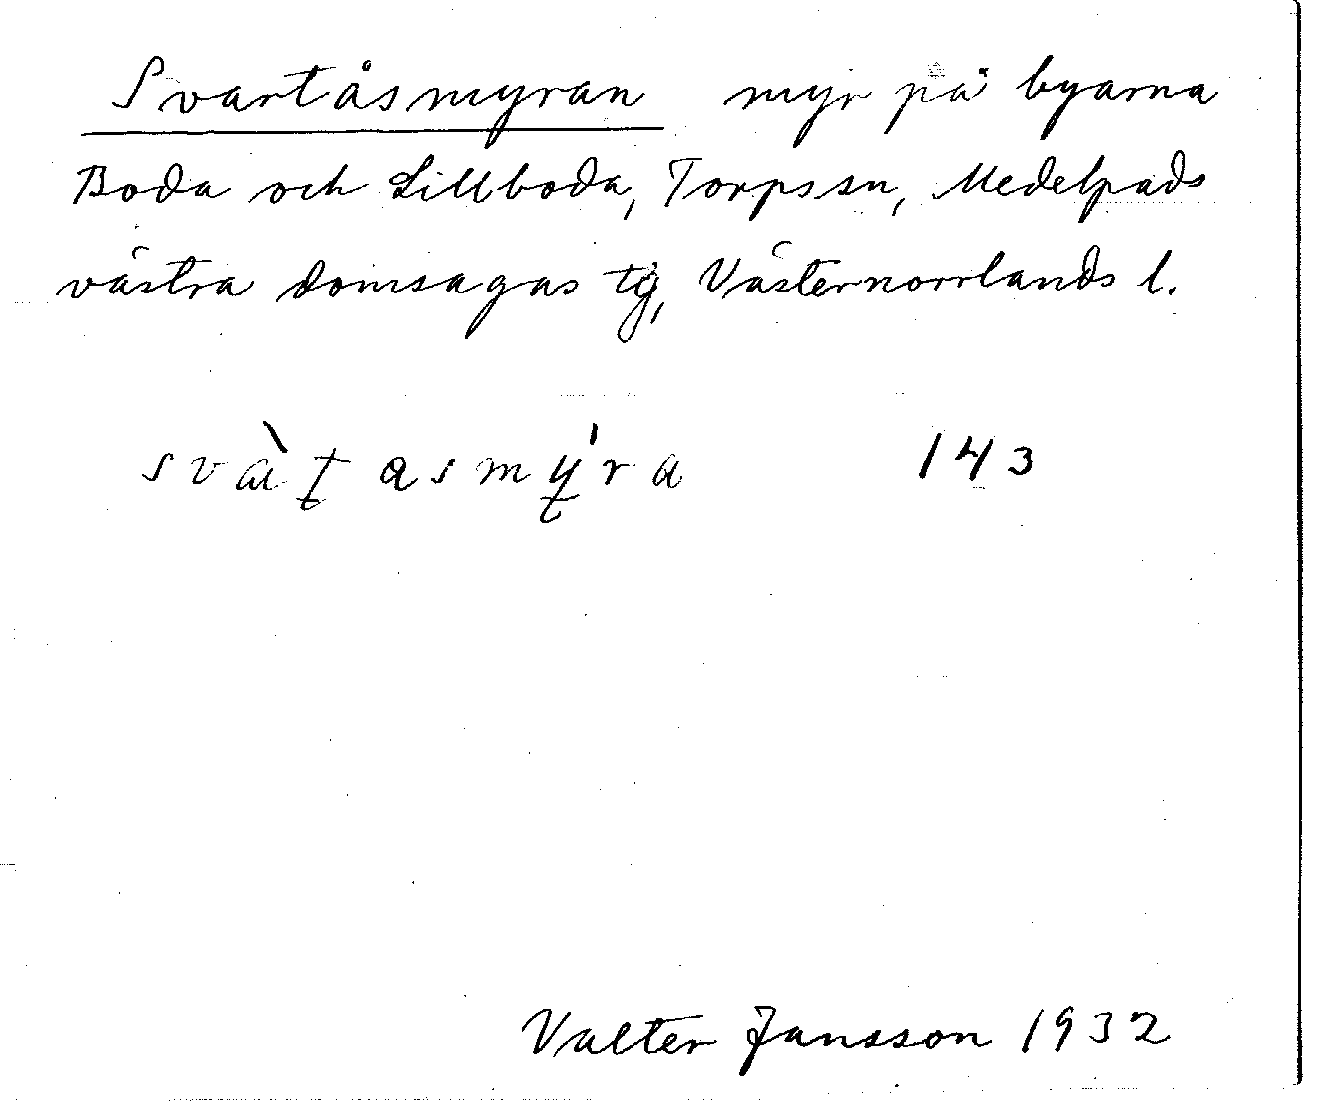 Svartåsmyran myr på byarna
Boda och Lillboda, Torps sn, Medelpads
västra domsagas tg, Västernorrlands l.
svàṭasmý̱ra 143
Valter Jansson 1932